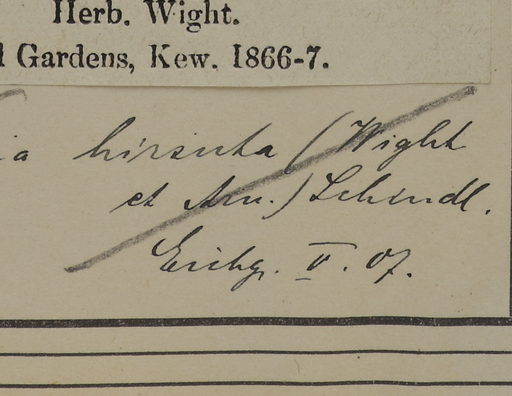 Herb. Wight.
Gardens, Kew. 1866-7.
hirsuta (Wight
et Arn.) Schindl.
V. 07.